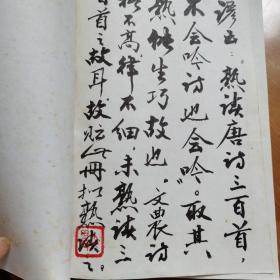 谚云：熟读唐诗三百首，
不会吟诗也会吟。取其
熟能生巧故也。文農诗
格不高律不细，未熟读三
百首之故耳故此冊拟熟读之。